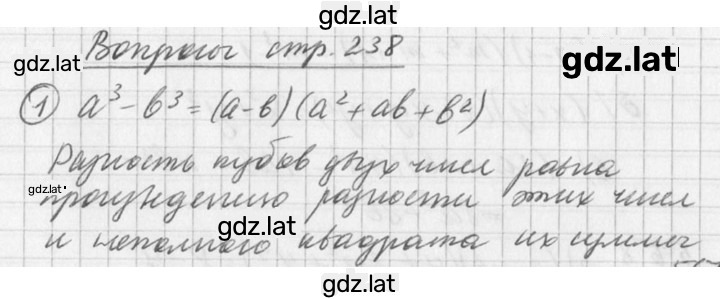 gdz.lat
Вопросы стр. 238
gdz.lat
gdz.lat
1 a³ - b³ = (a - b)(a² + ab + b²)
Разность кубов двух чисел равна
gdz.lat
произведению разности этих чисел
gdz.lat
и неполного квадрата их суммы
gdz.lat